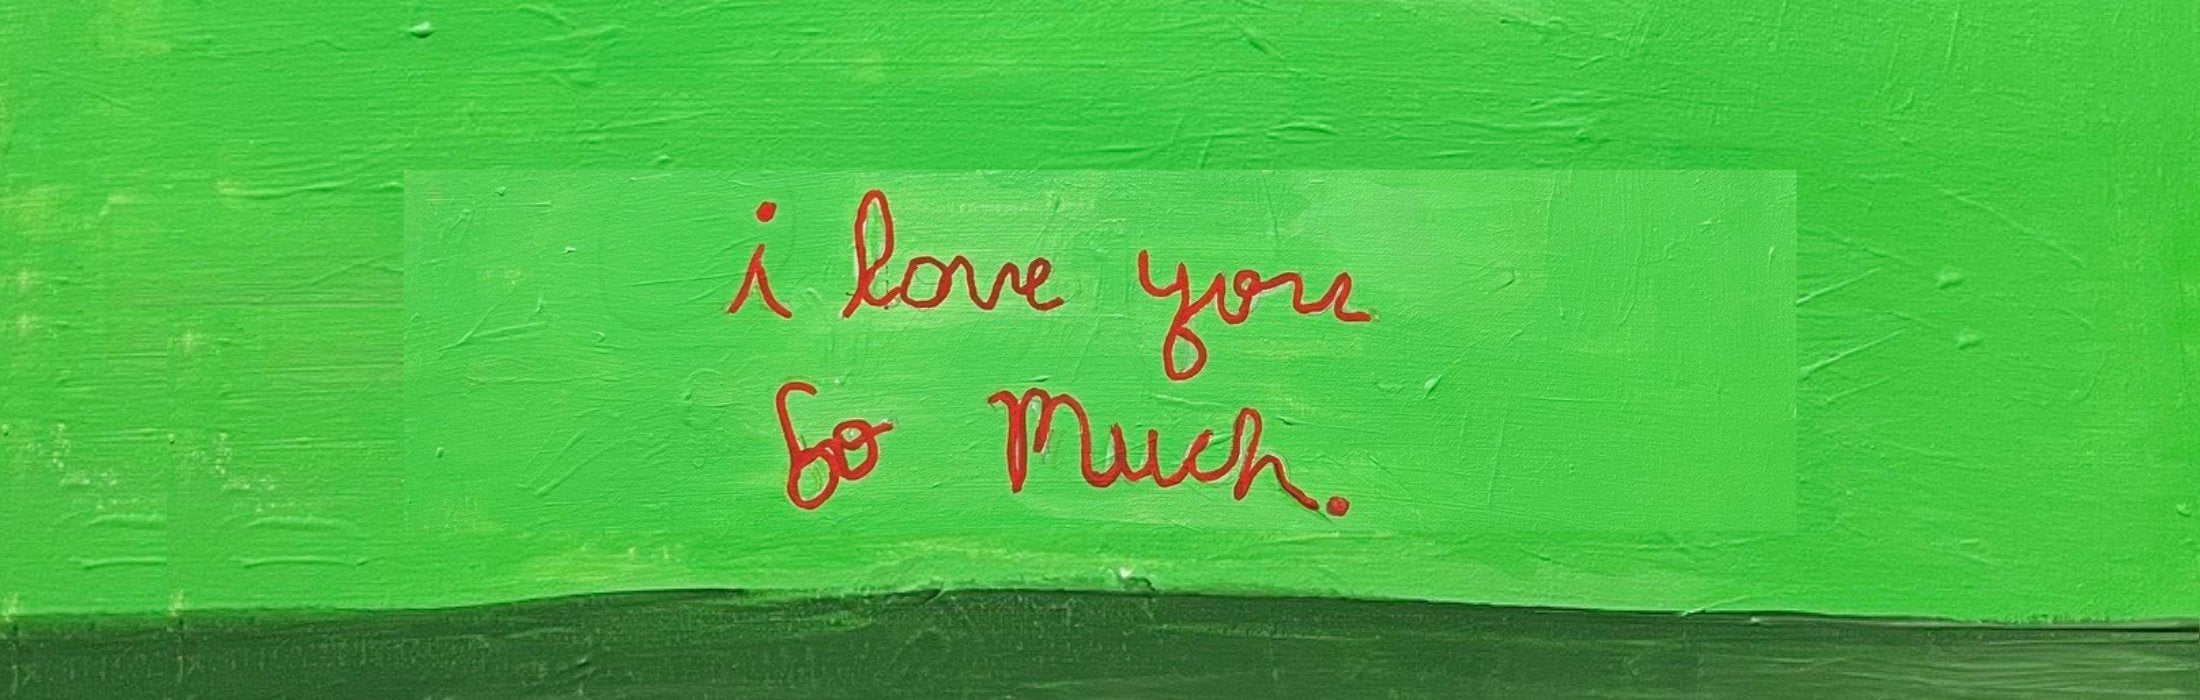 i love you
so Much.